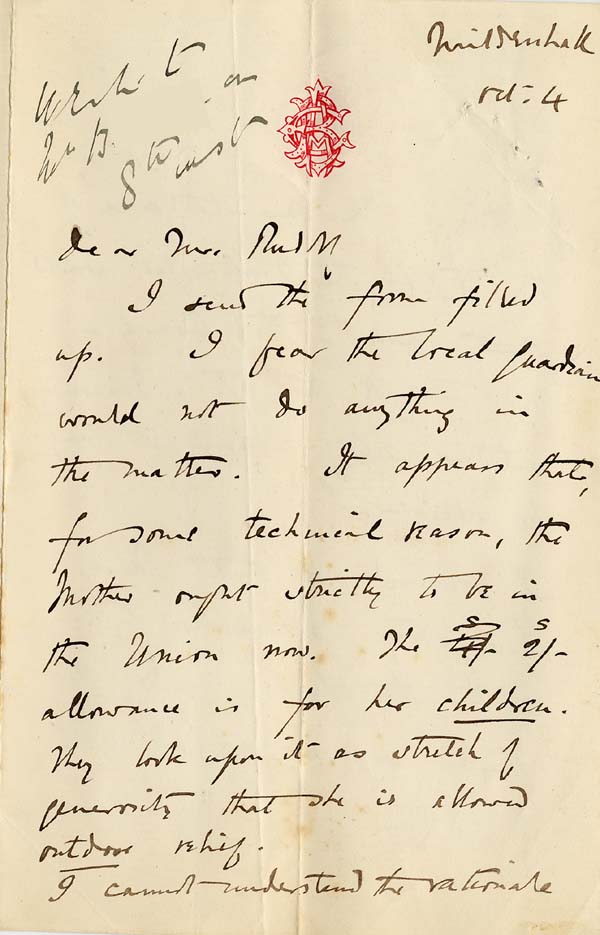 Mildenhall
Oct. 4
on
Mr B.
8th inst
Dear Mr. Rudolf
I send the form filled
up. I fear the local guardian
would not do anything in
the matter. It appears that,
for some technical reason, the
Mother ought strictly to be in
the Union now. The 2s/-
allowance is for her children.
They look upon it as stretch of
generosity that she is allowed
outdoor relief.
I cannot understand the rationale